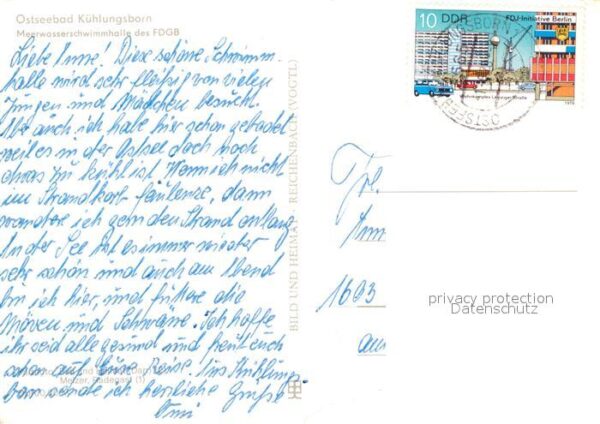 Ostseebad Kühlungsborn
Meerwasserschwimmhalle des FDGB
Liebe Diese schöne Schwimm-
halle wird sehr fleißig von vielen
Jungen und Mädchen besucht.
auch ich habe hier schon gebadet
weil es in der Ostsee doch noch
etwas zu kühl ist. Wenn ich nicht
im Strandkorb faulenze, dann
wandere ich gern den Strand entlang
An der See ist es immer wieder
sehr schön und auch am Abend
bin ich hier, und füttere die
Möven und Schwäne. Ich hoffe
ihr seid alle gesund und freut euch
schon auf Eure Reise. Aus Kühlungs-
born sende ich herzliche Grüße
Omi
BILD UND HEIMAT REICHENBACH (VOGTL)
10 DDR FDJ-Initiative Berlin
Wohnkomplex Leipziger Straße
1979
OSTSEEB
Frl.
1603
privacy protection
Datenschutz
aus